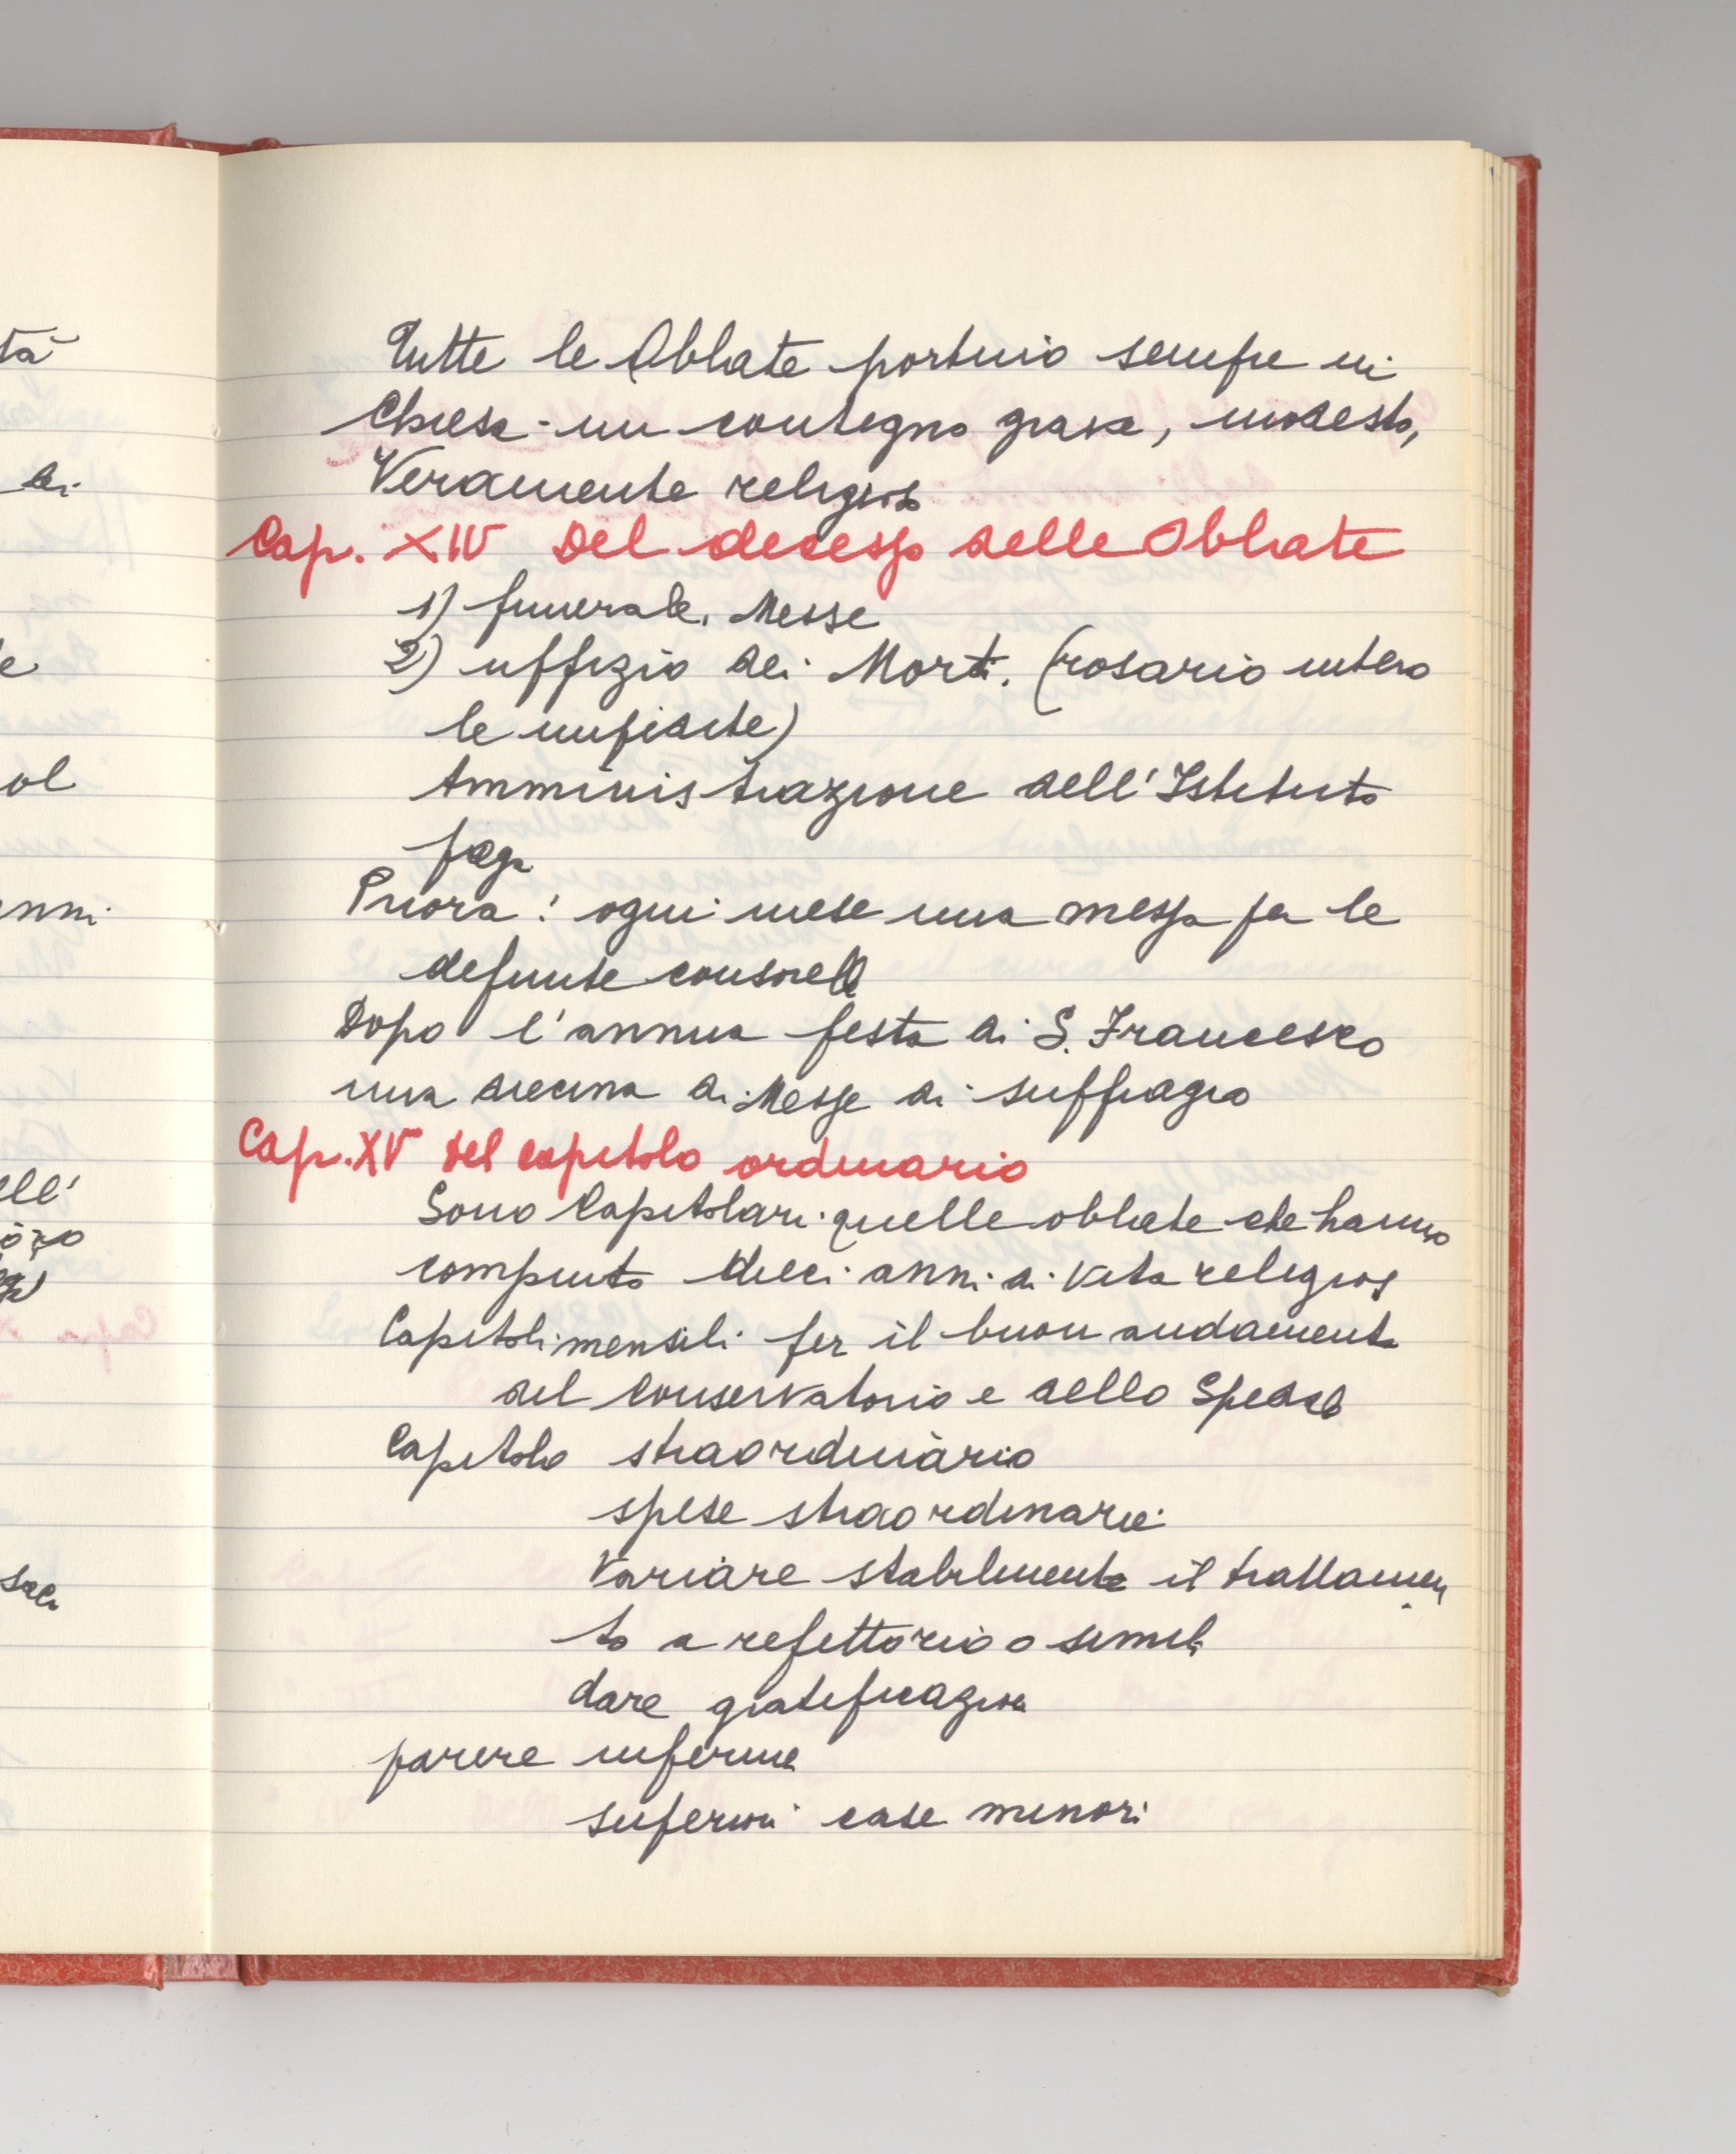 Tutte le Oblate portino sempre in
Chiesa un contegno grave, modesto,
Veramente religioso
Cap. XIV Del decesso delle Oblate
1) funerale. Messe
2) uffizio dei Morti. (rosario intero
le
Amministrazione dell'Istituto
paga
Priora: ogni mese una messa per le
defunte consorelle
Dopo l'annua festa di S. Francesco
una diecina di Messe di suffragio
Cap. XV Del capitolo ordinario
Sono Capitolari quelle oblate che hanno
compiuto dieci anni di vita religios
Capitoli mensili per il buon andamento
del Conservatorio e dello Spedale
Capitolo straordinario
spese straordinarie
Variare stabilmente il trattamen
to a refettorio o simili
dare gratificazioni
parere inferme
superiori case minori
tà
di
e
ol
nni
ell'